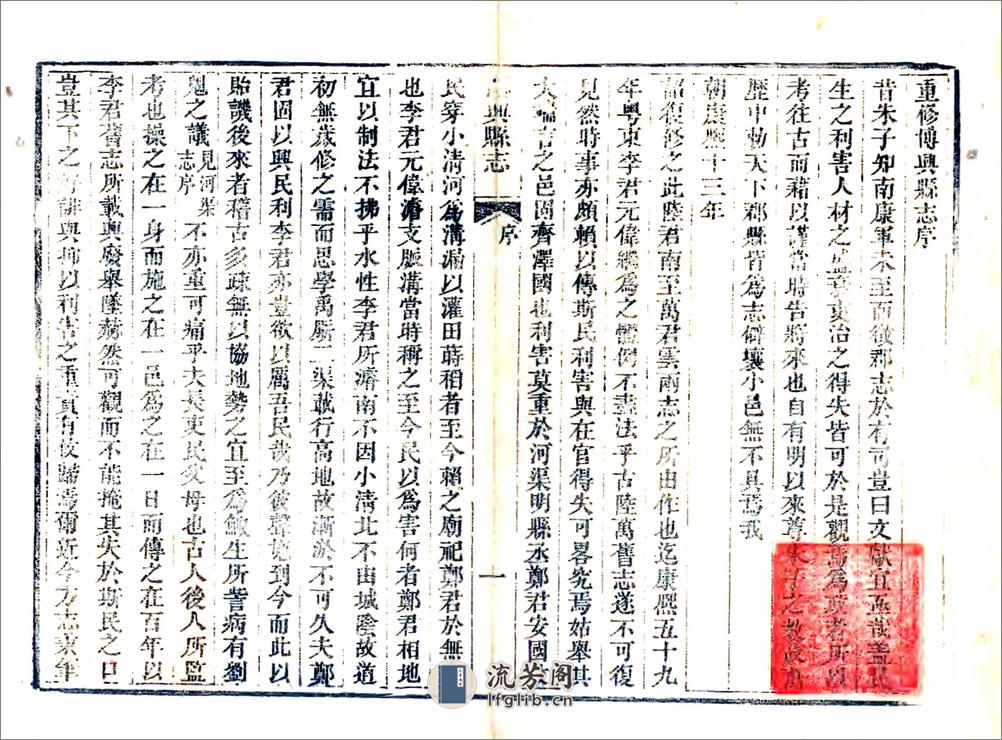 重修博興縣志序
昔朱子知南康軍未至而徵郡志於有司豈曰文獻宜
生之利害人材之吏治之得失皆可於是觀焉為政者所
考往古而藉以謹當時告將來也自有明以來尊朱子之
歷中勅天下郡縣皆為志僻壤小邑無不具焉我
朝康熙十三年
詔復修之此陸君南至萬君雲兩志之所由作也迄康熙五十九
年粵東李君元偉繼為之體例不盡法乎古陸萬舊志遂不可復
見然時事亦頗賴以傳斯民利害與在官得失可畧究焉姑舉其
大端言之邑固齊澤國也利害莫重於河渠明縣丞鄭君安國
興縣志
序
一
民穿小清河為溝漏以灌田蒔稻者至今賴之廟祀鄭君於無
也李君元偉濬支脈溝當時稱之至今民以為害何者鄭君相地
宜以制法不拂乎水性李君所濬南不因小清北不由城陰故道
初無歲修之需而思學禹厮二渠載行高地故漸淤不可久夫鄭
君固以興民利李君亦豈欲以厲吾民哉乃彼聲施到今而此以
貽譏後來者稽古多疎無以協地勢之宜至為敝生所訾病有劉
勉之議見河渠志序不亦重可痛乎夫長吏民父母也古人後人所監
考也操之在一身而施之在一邑為之在一日而傳之在百年以
李君舊志所載興廢舉墜赫然可觀而不能掩其失於斯民之口
豈其下之好誹與抑以利害之重責有攸歸焉爾近今方志
流芳阁
lfglib.cn